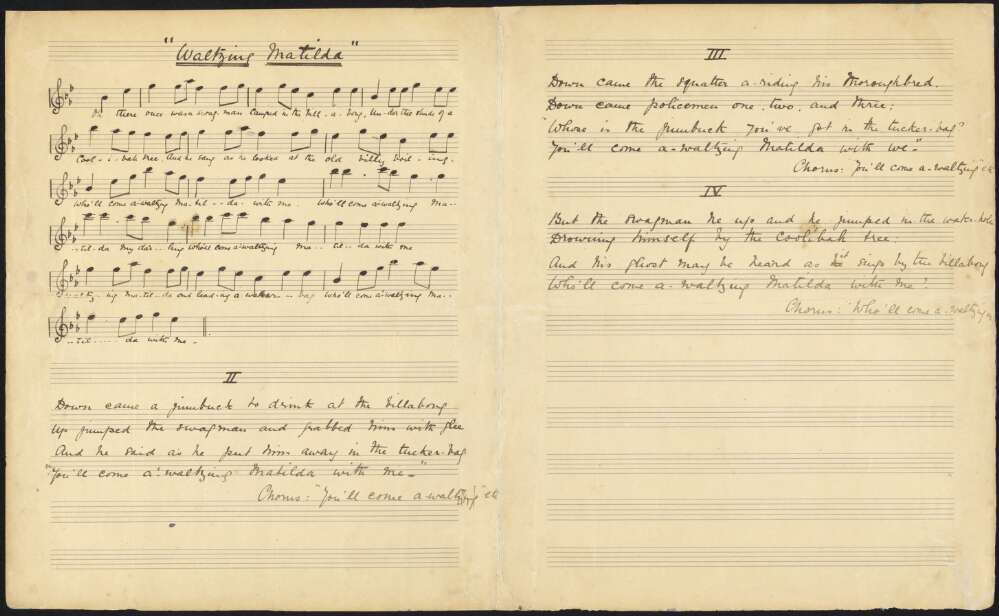 "Waltzing Matilda"
Oh there once was a swag-man camped in the bill-a-bong, Un-der the shade of a
Cool-i-bah tree. And he sang as he looked at the old billy boil-ing-
Who'll come a-waltzing Ma-til-da with me. Who'll come a-waltzing Ma-
-til-da my dar-ling who'll come a-waltzing Ma-til-da with me
-ing Ma-til-da and lead-ing a water-bag Who'll come a-waltzing Ma-
-til-da with me.
II
Down came a jumbuck to drink at the billabong
Up jumped the swagman and grabbed him with glee
And he said as he put him away in the tucker-bag
"You'll come a-waltzing Matilda with me-"
Chorus: "You'll come a-waltzing" etc
III
Down came the Squatter a-riding his thoroughbred.
Down came policemen one, two, and three;
"Whose is the jumbuck you've got in the tucker-bag?
You'll come a-waltzing Matilda with we-"
Chorus: "You'll come a-waltzing" etc
IV
But the swagman he up and he jumped in the water-hole
Drowning himself by the coolibah tree.
And his ghost may be heard as it sings by the billabong
Who'll come a-waltzing Matilda with me?
Chorus: "Who'll come a-waltzing